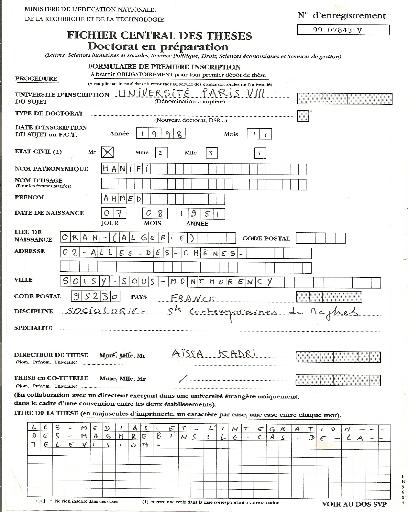 MINISTERE DE L'EDUCATION NATIONALE,
DE LA RECHERCHE ET DE LA TECHNOLOGIE
N° d'enregistrement
FICHIER CENTRAL DES THESES
Doctorat en préparation
FORMULAIRE DE PREMIERE INSCRIPTION
A fournir OBLIGATOIREMENT pour tout premier dépôt de thèse
PROCEDURE
UNIVERSITE D'INSCRIPTION UNIVERSITÉ PARIS VIII
DU SUJET (Dénomination complète)
TYPE DE DOCTORAT
(Nouveau doctorat, DSR...)
DATE D'INSCRIPTION
DU SUJET au F.C.T. Année 1998 Mois 11
ETAT CIVIL (1) Mr X Mme 2 Mlle 3
NOM PATRONYMIQUE HANIFI
NOM D'USAGE
PRENOM AHMED
DATE DE NAISSANCE 07 08 1951
JOUR MOIS ANNEE
LIEU DE
NAISSANCE ORAN-(ALGERIE) CODE POSTAL
ADRESSE 02-ALLEE-DES-CHENES-
VILLE SOISY-SOUS-MONTMORENCY
CODE POSTAL 95230 PAYS FRANCE
DISCIPLINE SOCIOLOGIE- Stés Contemporaines du Maghreb
SPECIALITE
DIRECTEUR DE THESE Mme, Mlle, Mr AÏSSA KADRI
(Nom, Prénom, Titre)
THESE en CO-TUTELLE Mme, Mlle, Mr /
(En collaboration avec un directeur exerçant dans une université étrangère uniquement,
dans le cadre d'une convention entre les deux établissements).
TITRE DE LA THESE (en majuscules d'imprimerie, un caractère par case, une case entre chaque mot).
LES-MEDIAS-ET-L'INTEGRATION---
DES-MAGHREBINS:LE-CAS-DE-LA--
TELEVISION-
VOIR AU DOS SVP